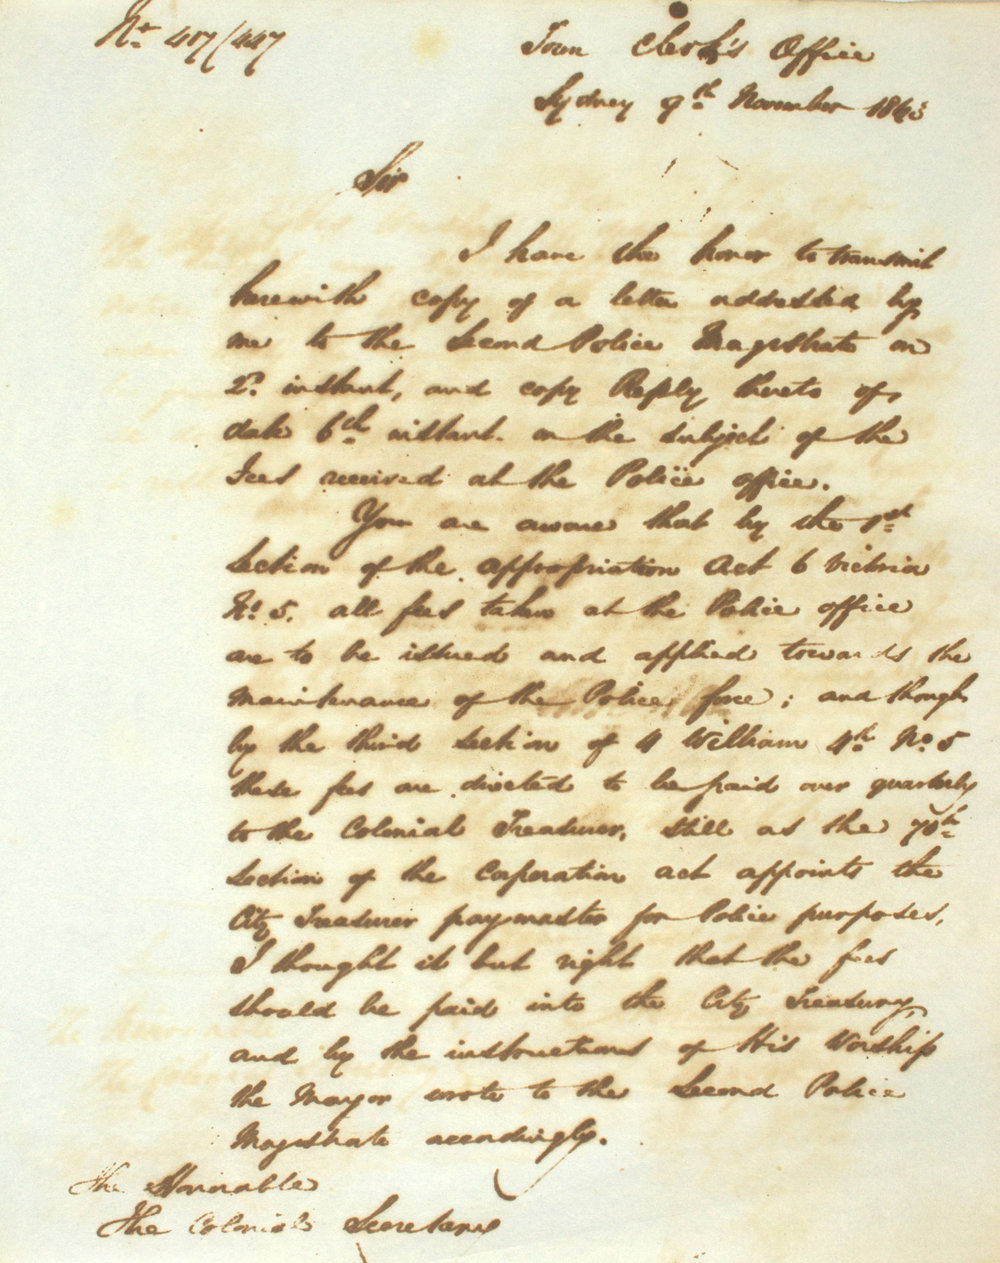 No. 417/447
Town Clerk's Office
Sydney 9th November 1843
Sir
I have the honor to transmit
herewith copy of a letter addressed by
me to the Second Police Magistrate on
2d. instant, and copy Reply thereto of
date 6th instant. on the subject of the
Fees received at the Police office.
You are aware that by the 1st
Section of the appropriation Act 6 Victoria
No. 5. all fees taken at the Police office
are to be issued and applied towards the
maintenance of the Police force; and though
by the third section of 4 William 4th No 5
these fees are directed to be paid over quarterly
to the Colonial Treasurer, still as the 70th
Section of the Corporation act appoints the
City Treasurer paymaster for Police purposes,
I thought it but right that the fees
should be paid into the City Treasury,
and by the instructions of His Worship
the Mayor wrote to the Second Police
Magistrate accordingly.
The Honorable
The Colonial Secretary